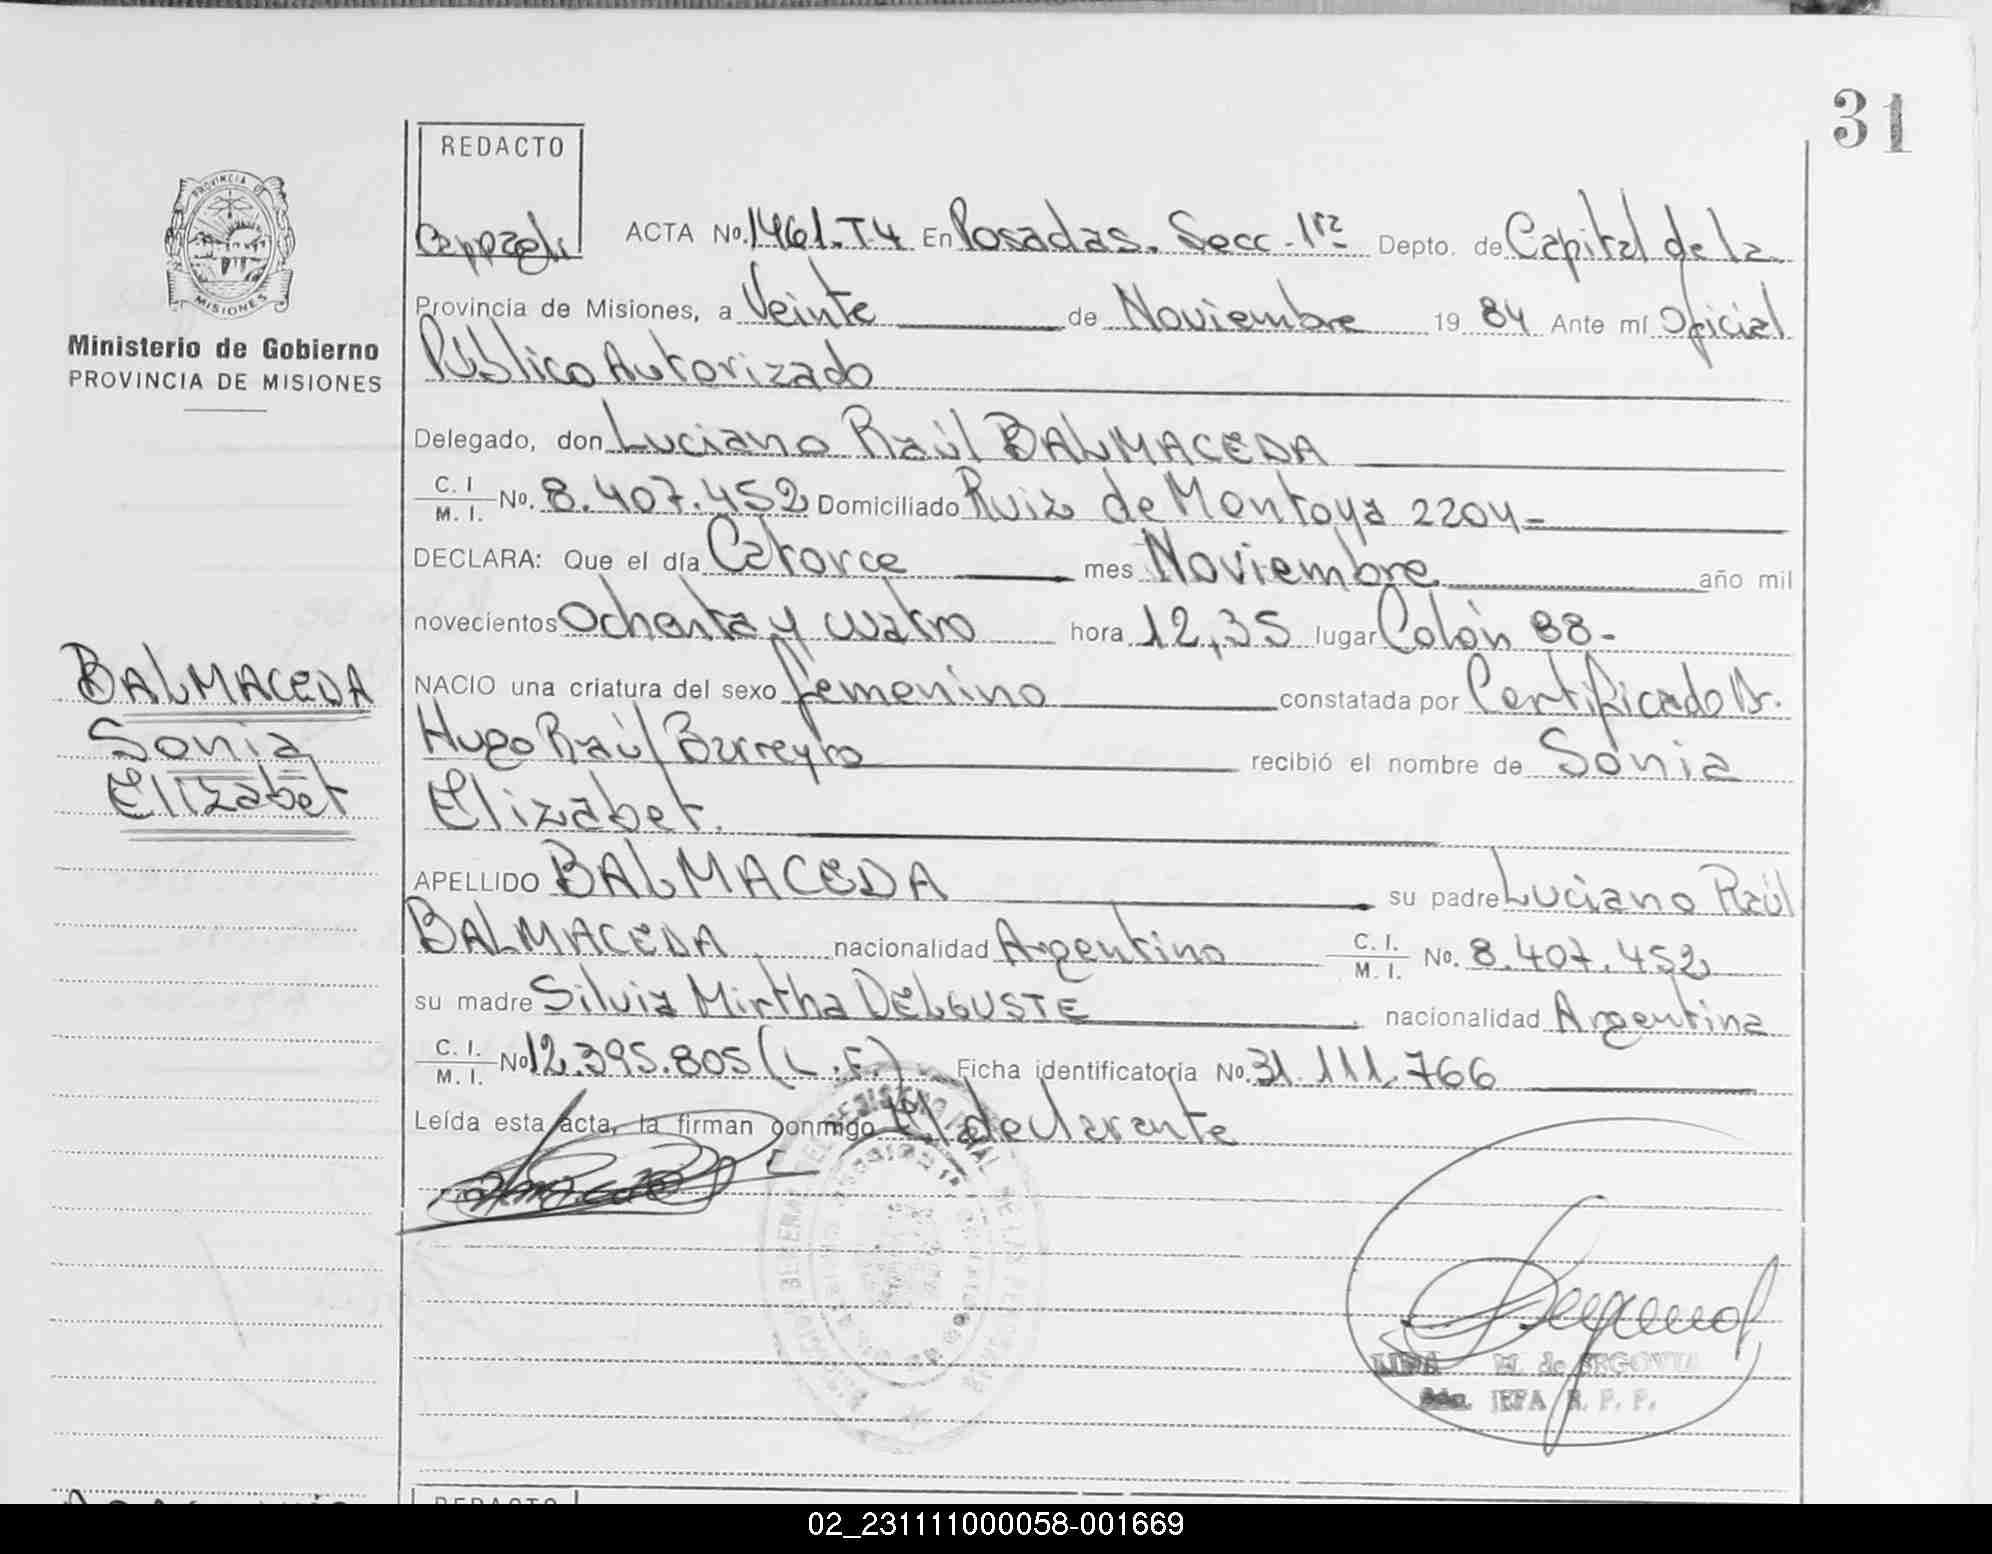 31
REDACTO
PROVINCIA DE
MISIONES
Ministerio de Gobierno
PROVINCIA DE MISIONES
ACTA No. 1461. T4 En Posadas. Secc. 1ra Depto. de Capital de la
Provincia de Misiones, a Veinte de Noviembre 19 84 Ante mí Oficial
Público Autorizado
Delegado, don Luciano Raúl BALMACEDA
C. I. / M. I. No. 8.407.452 Domiciliado Ruiz de Montoya 2204-
DECLARA: Que el día Catorce mes Noviembre año mil
novecientos Ochenta y cuatro hora 12,35 lugar Colón 88-
NACIO una criatura del sexo femenino constatada por Certificado Dr.
Hugo Raúl Barreyro recibió el nombre de Sonia
Elizabet.
BALMACEDA
Sonia
Elizabet
APELLIDO BALMACEDA su padre Luciano Raúl
BALMACEDA nacionalidad Argentino C. I. / M. I. No. 8.407.452
su madre Silvia Mirtha DELGUSTE nacionalidad Argentina
C. I. / M. I. No 12.395.805 (L.F.) Ficha identificatoria No. 31.111.766
Leída esta acta, la firman conmigo El declarante
M. de SEGOVIA
JEFA R. P. P.
REDACTO
02_231111000058-001669